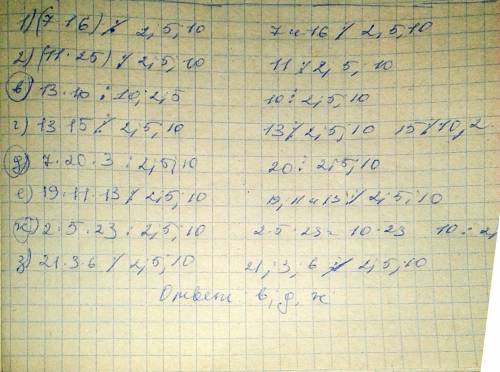 1) (7·16) ⋮̸ 2, 5, 10 7 и 16 ⋮̸ 2, 5, 10
2) (11·25) ⋮̸ 2, 5, 10 11 ⋮̸ 2, 5, 10
в) 13·10 ⋮ 10; 2, 5 10 ⋮ 2, 5, 10
г) 13·15 ⋮̸ 2, 5, 10 13 ⋮̸ 2, 5, 10 15 ⋮̸ 10, 2
д) 7·20·3 ⋮ 2, 5, 10 20 ⋮ 2, 5, 10
е) 19·11·13 ⋮̸ 2, 5, 10 19, 11 и 13 ⋮̸ 2, 5, 10
ж) 2·5·23 ⋮ 2, 5, 10 2·5·23 = 10·23 10 ⋮ 2,
з) 21·36 ⋮̸ 2, 5, 10 21, 3, 6 ⋮̸ 2, 5, 10
Ответ: в, д, ж